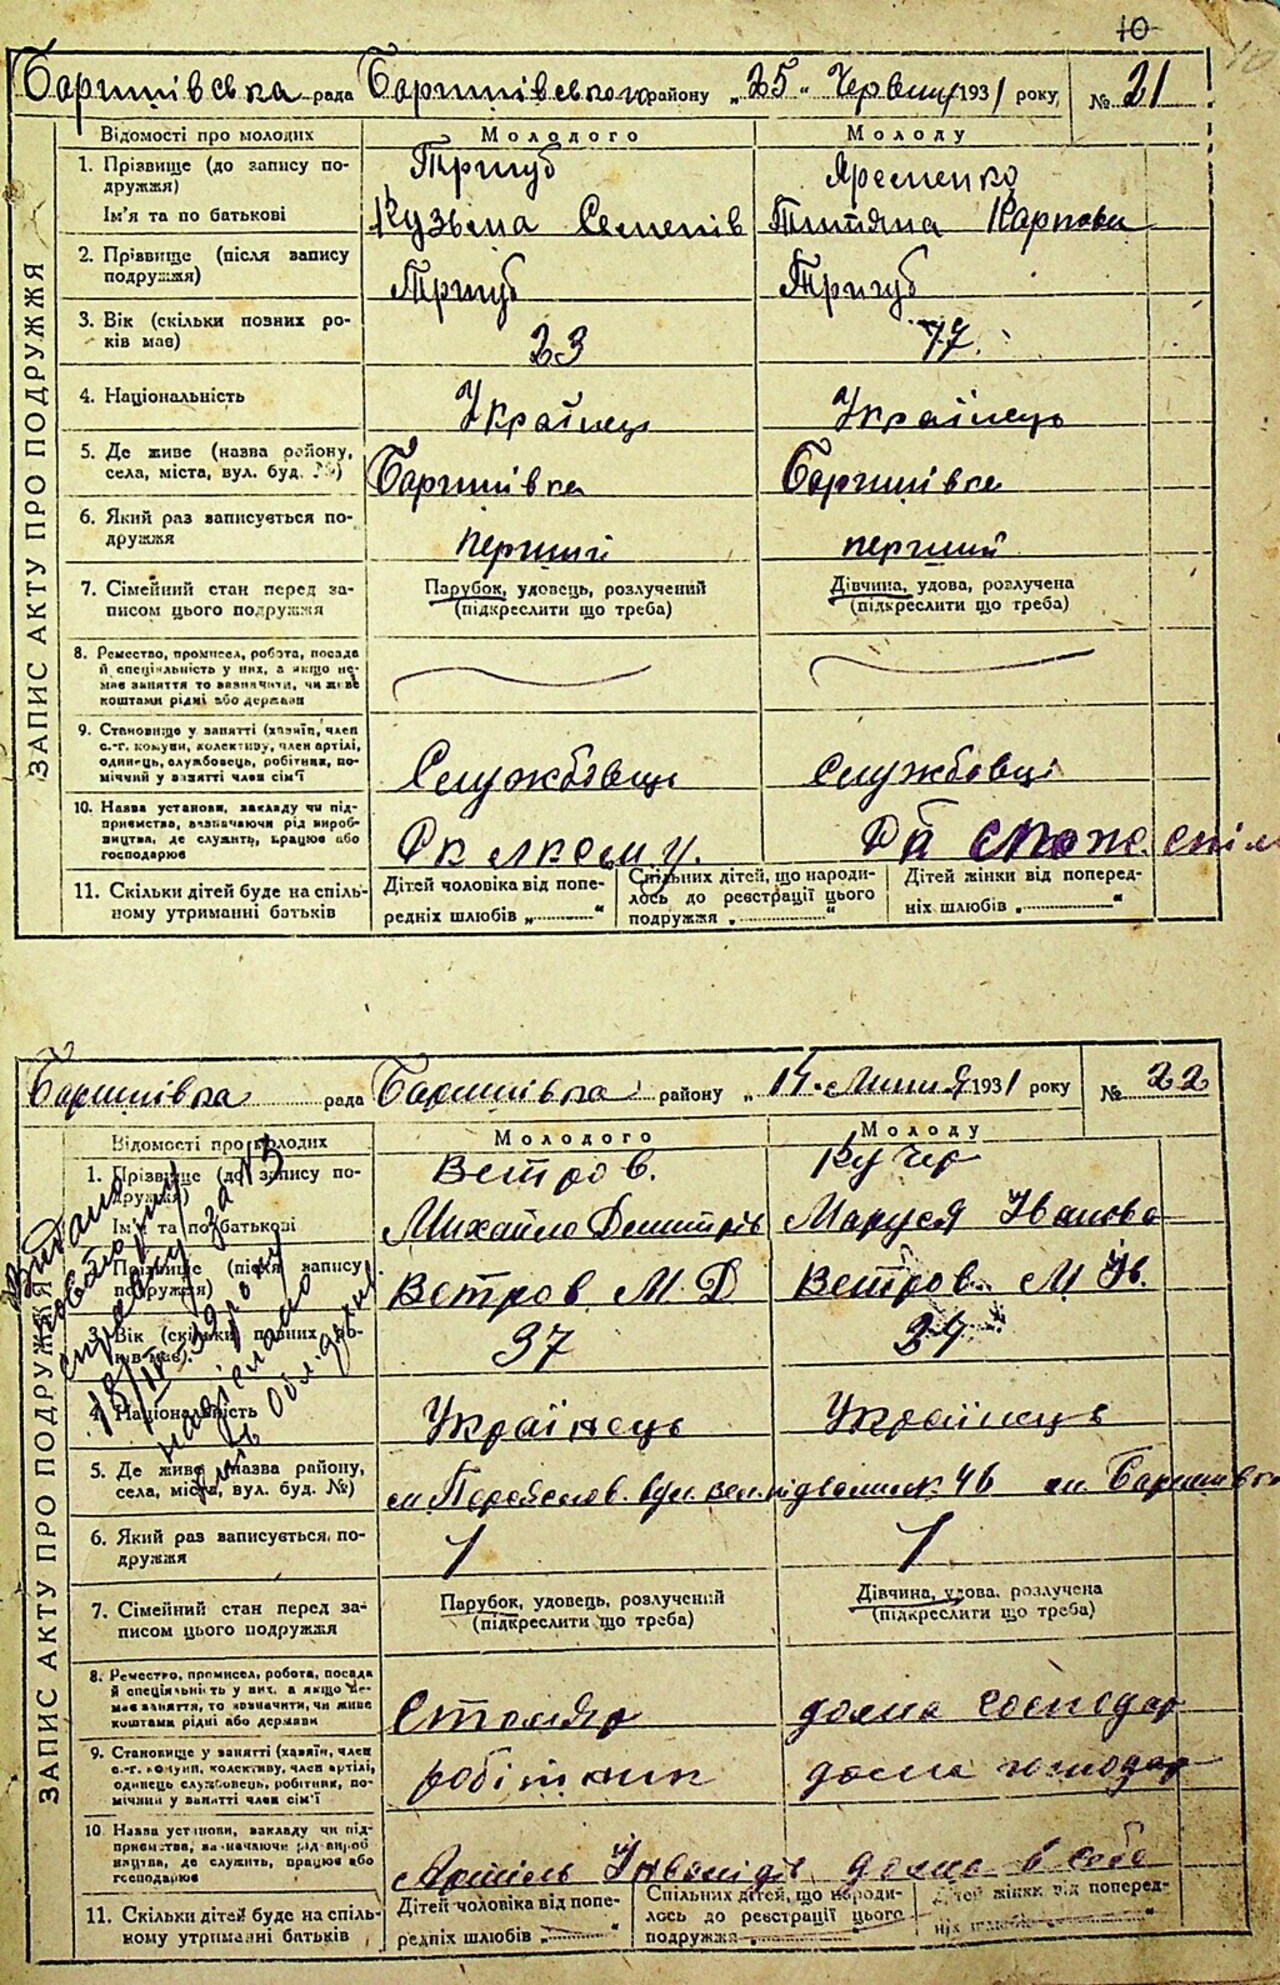 10
Баришівська рада Баришівського району „25“ Червня 1931 року № 21
ЗАПИС АКТУ ПРО ПОДРУЖЖЯ
Відомості про молодих Молодого Молоду
1. Прізвище (до запису по-
дружжя) Тригуб Яременко
Ім'я та по батькові Кузьма Семенів Титяна Карпови
2. Прізвище (після запису
подружжя) Тригуб Тригуб
3. Вік (скільки повних ро-
ків має) 23
4. Національність Українець Українець
5. Де живе (назва району,
села, міста, вул. буд. №) Баришівка Баришівка
6. Який раз записується по-
дружжя перший перший
7. Сімейний стан перед за- Парубок, удовець, розлучений Дівчина, удова, розлучена
писом цього подружжя (підкреслити що треба) (підкреслити що треба)
8. Ремество, промисел, робота, посада
й спеціяльність у них, а якщо не-
має заняття то зазначити, чи живе
коштами рідні або держави
9. Становище у занятті (хазяїн, член
с.-г. комуни, колективу, член артілі,
одинець, службовець, робітник, по-
мічний у занятті член сім'ї Службовець Службовці
10. Назва установи, закладу чи під-
приємства, зазначаючи рід вироб-
ництва, де служить, працює або
господарює
11. Скільки дітей буде на спіль- Дітей чоловіка від попе- Спільних дітей, що народи- Дітей жінки від поперед-
ному утриманні батьків редніх шлюбів „ “ лось до реєстрації цього ніх шлюбів „ “
подружжя „ “
Баришівка рада Баришівка району „14. Липня 1931 року № 22
ЗАПИС АКТУ ПРО ПОДРУЖЖЯ
Відомості про молодих Молодого Молоду
1. Прізвище (до запису по-
дружжя) Ветров. Кучер
Ім'я та по батькові Михайло Дмитрів Маруся Іванова
Прізвище (після запису
подружжя) Ветров М. Д Ветров М Ів.
3. Вік (скільки повних ро-
ків має). 37
4. Національність Українець Українець
5. Де живе (назва району,
села, міста, вул. буд. №) 46 м. Баришівка
6. Який раз записується по-
дружжя 1 1
7. Сімейний стан перед за- Парубок, удовець, розлучений Дівчина, удова, розлучена
писом цього подружжя (підкреслити що треба) (підкреслити що треба)
8. Ремество, промисел, робота, посада
й спеціяльність у них, а якщо не-
має заняття, то зазначити, чи живе
коштами рідні або держави Столяр дома господар
9. Становище у занятті (хазяїн, член
с.-г. комуни, колективу, член артілі,
одинець службовець, робітник, по-
мічний у занятті член сім'ї робітник дома господар
10 Назва установи, закладу чи під-
приємства, зазначаючи рід вироб
ництва, де служить, працює або
господарює Артіль Інвалідів дома в себе
11. Скільки дітей буде на спіль- Дітей чоловіка від попе- Спільних дітей, що народи- Дітей жінки від поперед-
ному утриманні батьків редніх шлюбів „ “ лось до реєстрації цього ніх шлюбів „ “
подружжя „ “
Видано
справку за №3
надіслано